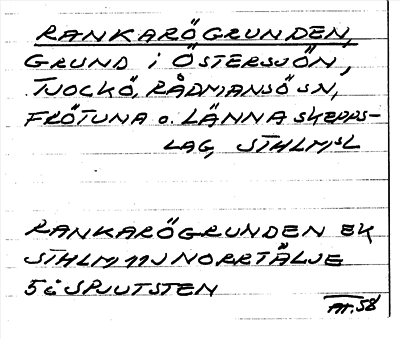 RANKARÖGRUNDEN,
GRUND i ÖSTERSJÖN,
TJOCKÖ, RÅDMANSÖ SN,
FRÖTUNA o. LÄNNA SKEPPS-
LAG, STHLMSL
RANKARÖGRUNDEN EK
STHLM 11J NORRTÄLJE
5 i SPJUTSTEN
AT. 58